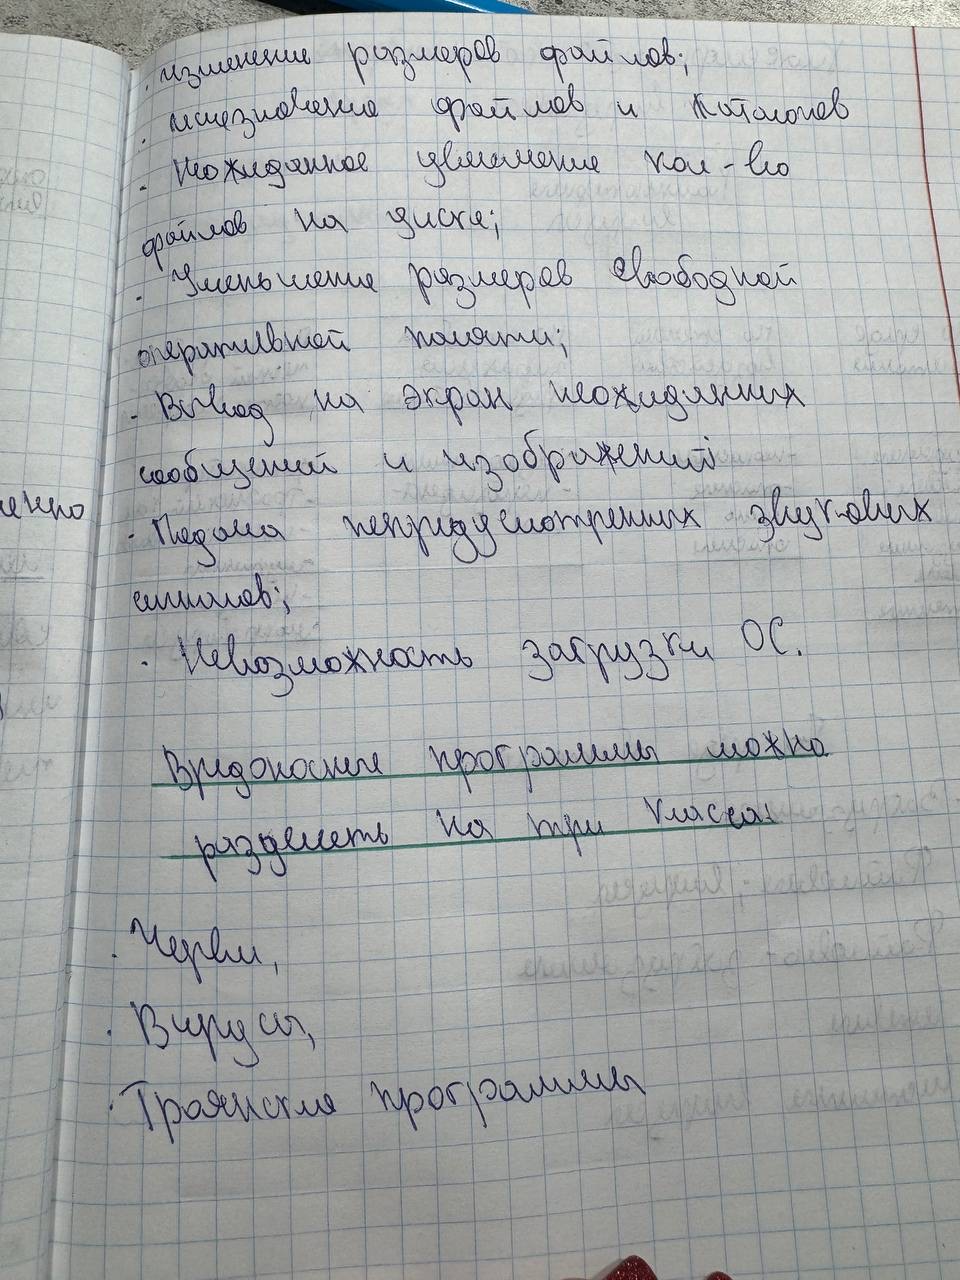 · изменение размеров файлов;
· исчезновение файлов и каталогов
· Неожиданное увеличение кол-во
файлов на диске;
· Уменьшение размеров свободной
оперативной памяти;
· Вывод на экран неожиданных
сообщений и изображений
· Подача непредусмотренных звуковых
сигналов;
· Невозможность загрузки ОС.
Вредоносные программы можно
разделить на три класса:
· Черви,
· Вирусы,
· Троянские программы